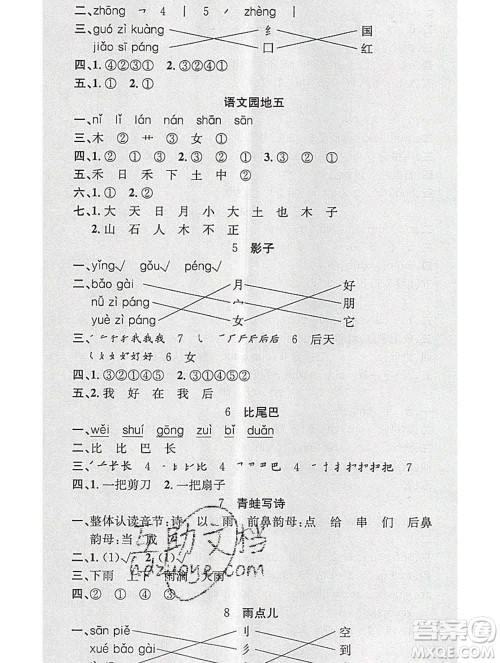 二、zhōng 一 4 | 5 丿 dǒng |
三、guó zì kuàng 纟 国
jiǎo sī páng 囗 红
四、1. ④②③① 2. ③②④①
五、1. ① 2. ①
语文园地五
一、nǐ lǐ lán nán shān sān
三、木 ② 艹 ③ 女 ①
四、1. ②①③ 2. ③①② 3. ②③①
五、禾 日 禾 下 土 中 ②
六、① ②
七、1. 大 天 日 月 小 大 土 也 木 子
2. 山 石 人 木 不 正
5 影子
一、yǐng√ gǒu√ péng√
二、bǎo gài 月 好
nǚ zì páng 宀 朋
yuè zì páng 女 它
三、我我 7 6 后天
好好 6 女
四、1. ③②①④ 2. ①③④②⑤
五、2. 我 好 在 我 后
6 比尾巴
一、wěi shuí gōng zuì bǐ duǎn
二、比 比 巴 长
三、长 4 比 4 巴 4 把 7
四、1. 一把剪刀 2. 一把扇子
7 青蛙写诗
一、整体认读音节:诗 以 雨 前鼻韵母:点 给 串 们 后鼻
韵母:当 成
二、1. (1)√ 2. (1)√
三、下雨 上下 雨滴 大雨
四、② ③ ① ④
8 雨点儿
一、sān piě 刂 空
xué bǎo gài 彡 到
互助文库
hdzuoye.com
答案圈
MXQE.COM